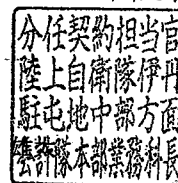 分任契約担当官
陸上自衛隊伊丹
駐屯地中部方面
會計隊本部業務科長